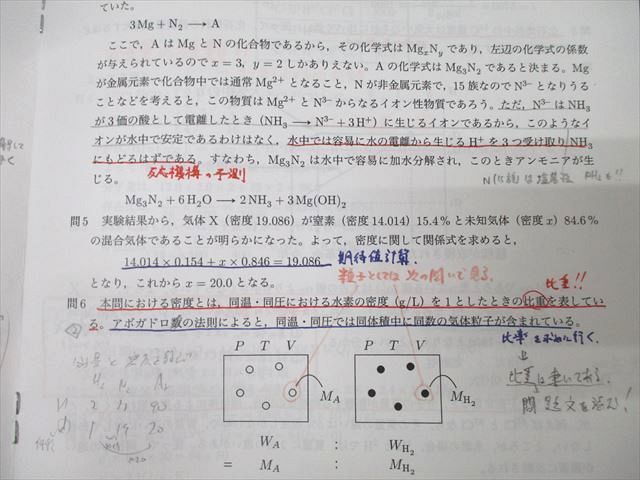 ていた。
3Mg + N₂ ⟶ A
ここで，A は Mg と N の化合物であるから，その化学式は MgxNy であり，左辺の化学式の係数
が与えられているので x = 3, y = 2 しかありえない。A の化学式は Mg₃N₂ であると決まる。Mg
が金属元素で化合物中では通常 Mg²⁺ となること，N が非金属元素で，15 族なので N³⁻ となりうる
ことなどを考えると，この物質は Mg²⁺ と N³⁻ からなるイオン性物質であろう。ただ，N³⁻ は NH₃
が 3 価の酸として電離したとき (NH₃ ⟶ N³⁻ + 3H⁺) に生じるイオンであるから，このようなイ
オンが水中で安定であるわけはなく，水中では容易に水の電離から生じる H⁺ を 3 つ受け取り NH₃
にもどるはずである。すなわち，Mg₃N₂ は水中で容易に加水分解され，このときアンモニアが生
じる。
反応機構の予測
Mg₃N₂ + 6H₂O ⟶ 2NH₃ + 3Mg(OH)₂
問5 実験結果から，気体 X（密度 19.086）が窒素（密度 14.014）15.4% と未知気体（密度 x）84.6%
の混合気体であることが明らかになった。よって，密度に関して関係式を求めると，
14.014 × 0.154 + x × 0.846 = 19.086
期待値計算.
となり，これから x = 20.0 となる。
粒子としては次の問いで見る.
比重!!
問6 本問における密度とは，同温・同圧における水素の密度 (g/L) を 1 としたときの比重を表してい
る。アボガドロ数の法則によると，同温・同圧では同体積中に同数の気体粒子が含まれている。
比率を求めに行く.
P T V P T V
MA MH₂
比重は書いてある.
問題文を読む!
WA : WH₂
= MA : MH₂